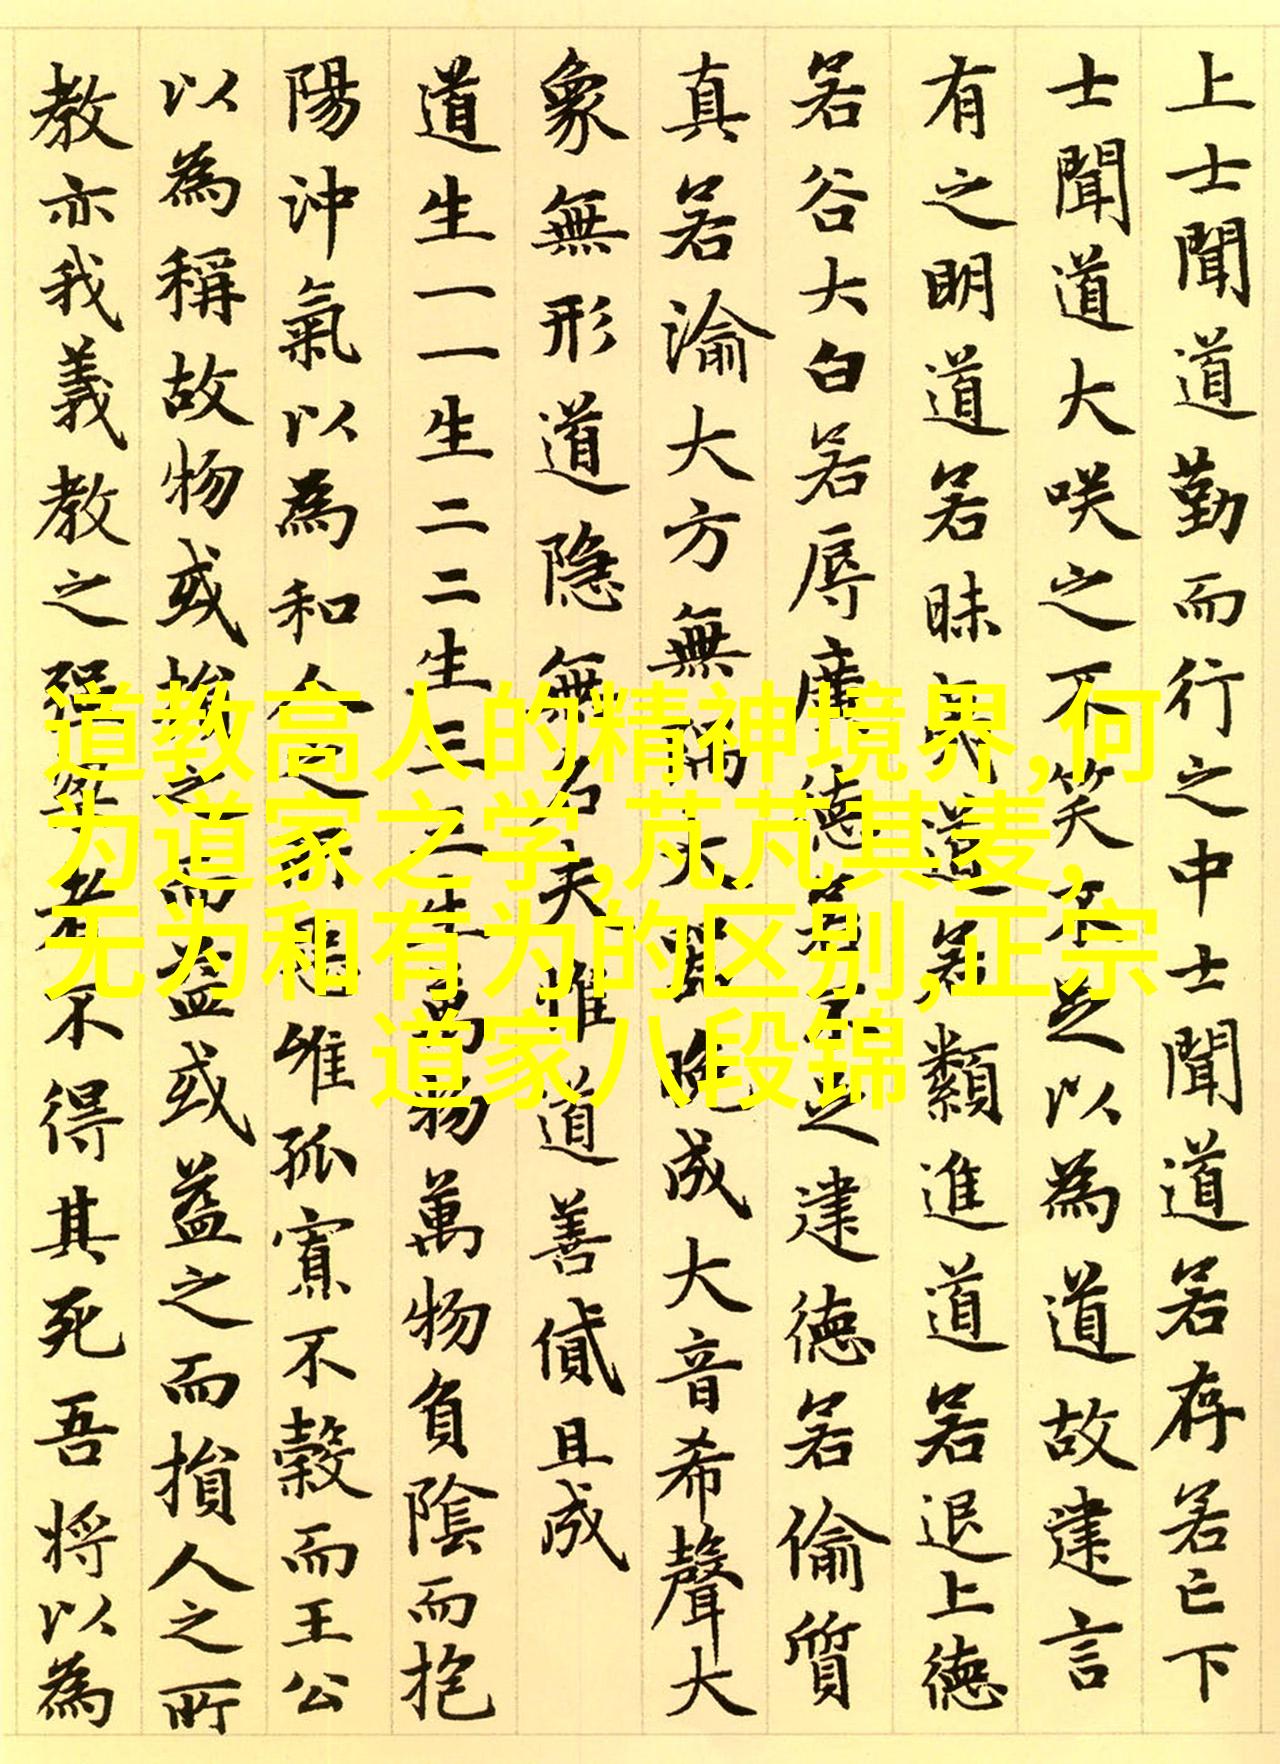 上士聞道勤而行之中士聞道若存若亡下
士聞道大咲之不笑不足以為道故建言
有之明道若昧夷道若類進道若退上德
若谷大白若辱廣德若不足建德若偷質
真若渝大方無隅大器晚成大音希聲大
象無形道隱無名夫惟道善貸且成
道生一一生二二生三三生萬物萬物負陰而抱
陽沖氣以為和人之所惡惟孤寡不穀而王公
以為稱故物或損之而益或益之而損人之所
教亦我義教之強梁者不得其死吾將以為
道教高人的精神境界,何
为道家之学,芃芃其麦,
无为和有为的区别,正宗
道家八段锦